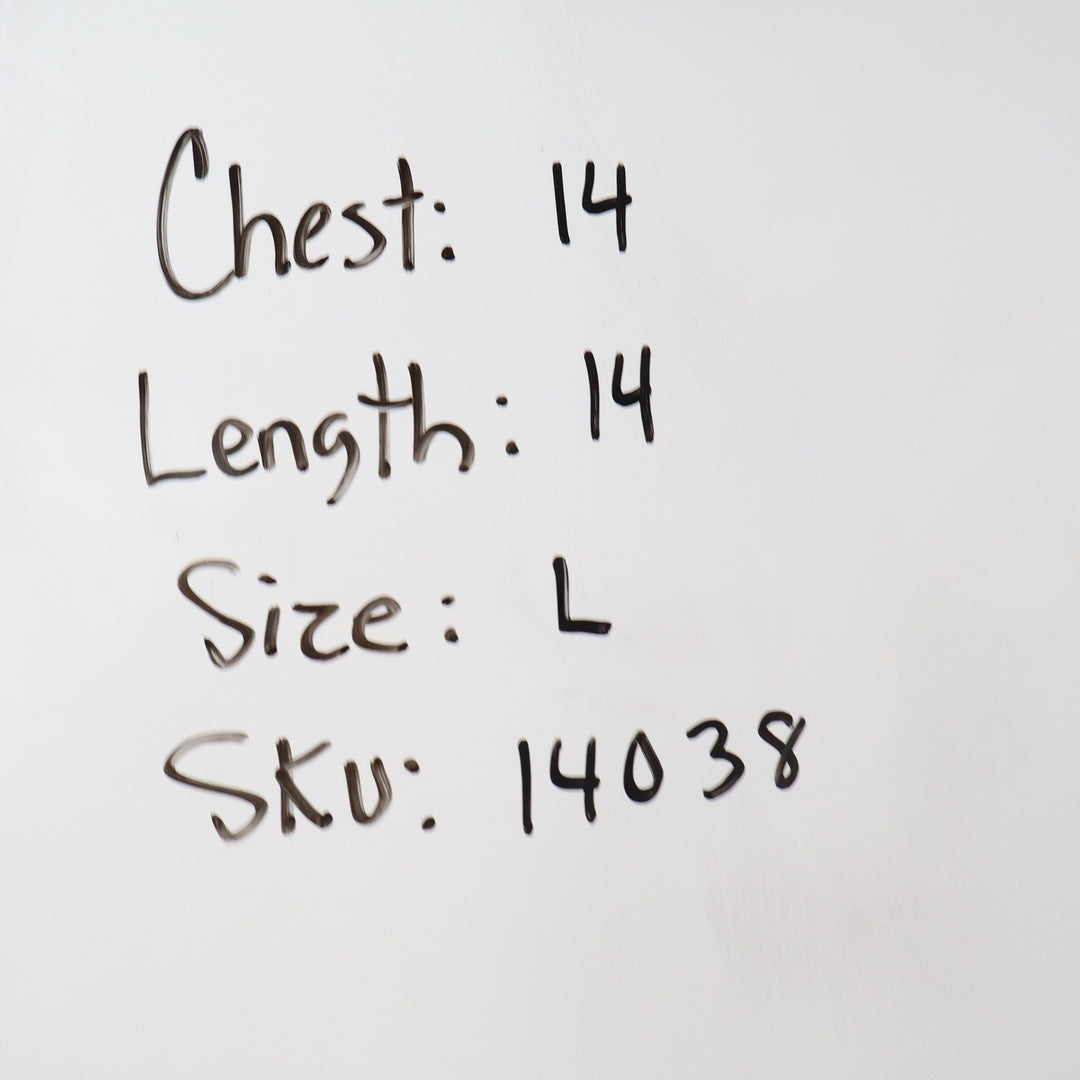 Chest: 14
Length: 14
Size: L
SKU: 14038